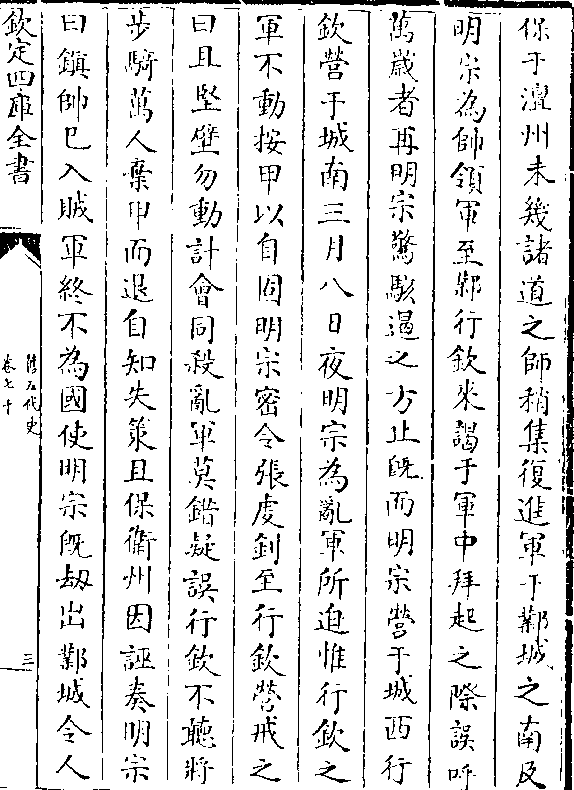 保于澶州未幾諸道之師稍集復進軍于鄴城之南及
明宗為帥領軍至鄴行欽來謁于軍中拜起之際誤呼
萬歲者再明宗驚駭遏之方止既而明宗營于城西行
欽營于城南三月八日夜明宗為亂軍所迫惟行欽之
軍不動按甲以自固明宗密令張虔釗至行欽營戒之
曰且堅壁勿動計會同殺亂軍莫錯疑誤行欽不聽將
步騎萬人棄甲而退自知失策且保衞州因誣奏明宗
曰鎮帥已入賊軍終不為國使明宗既刼出鄴城令人
欽定四庫全書
舊五代史
卷七十
三